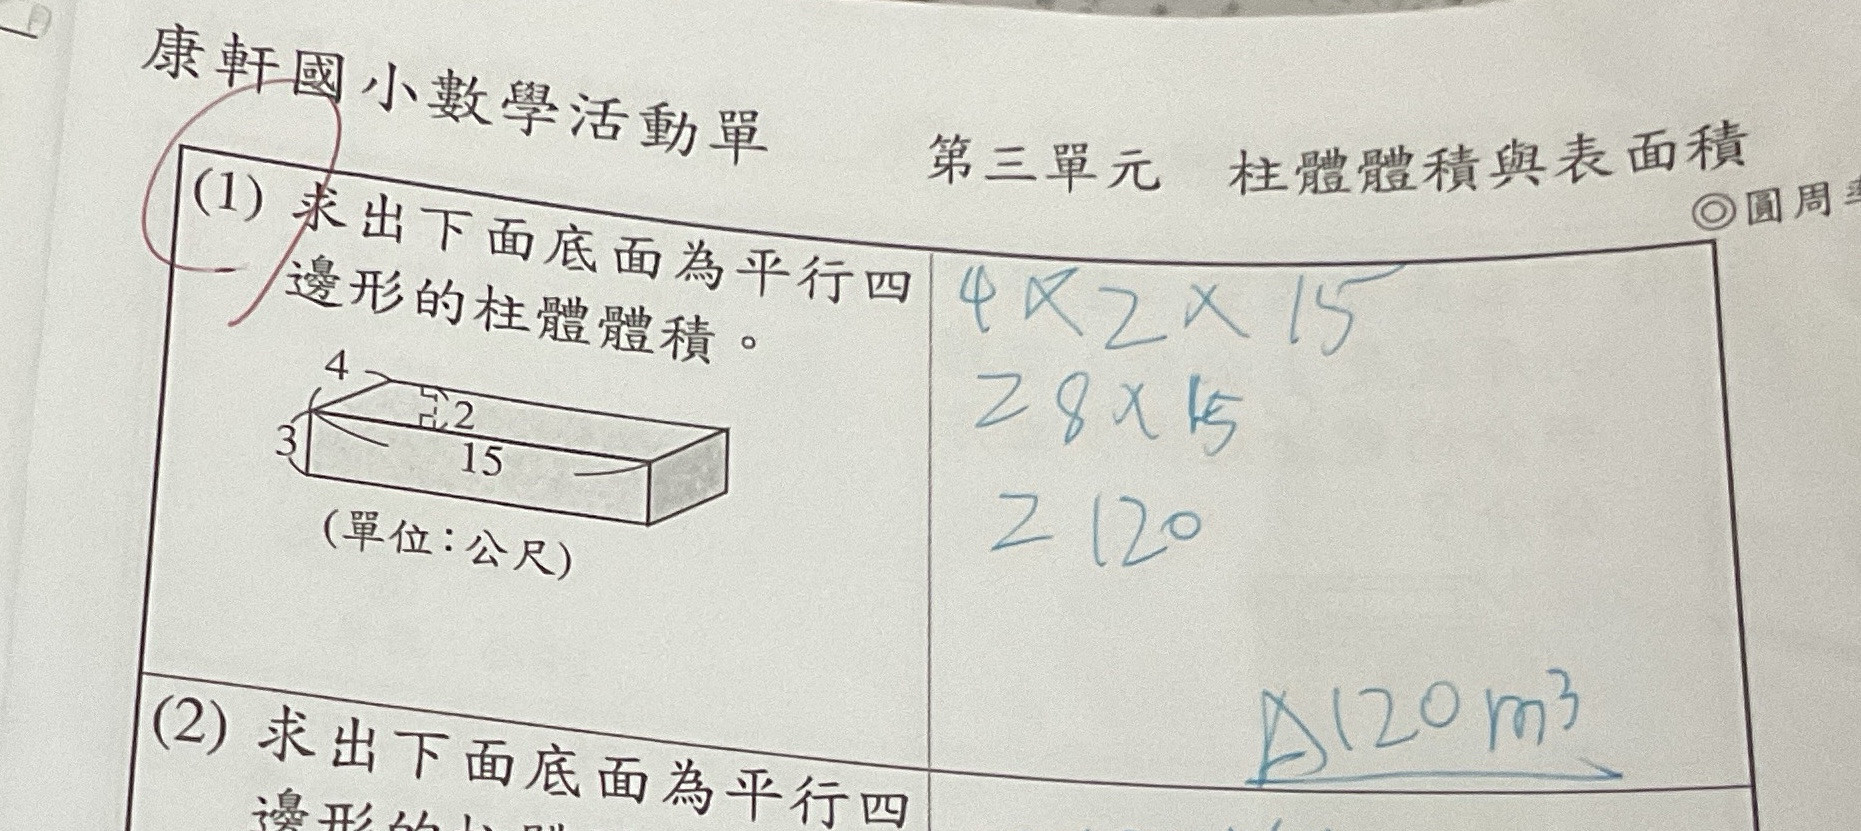 康軒國小數學活動單
第三單元 柱體體積與表面積
◎圓周
(1) 求出下面底面為平行四
邊形的柱體體積。
4
2
3
15
(單位：公尺)
4×2×15
=8×15
=120
A120m³
(2) 求出下面底面為平行四
邊形的